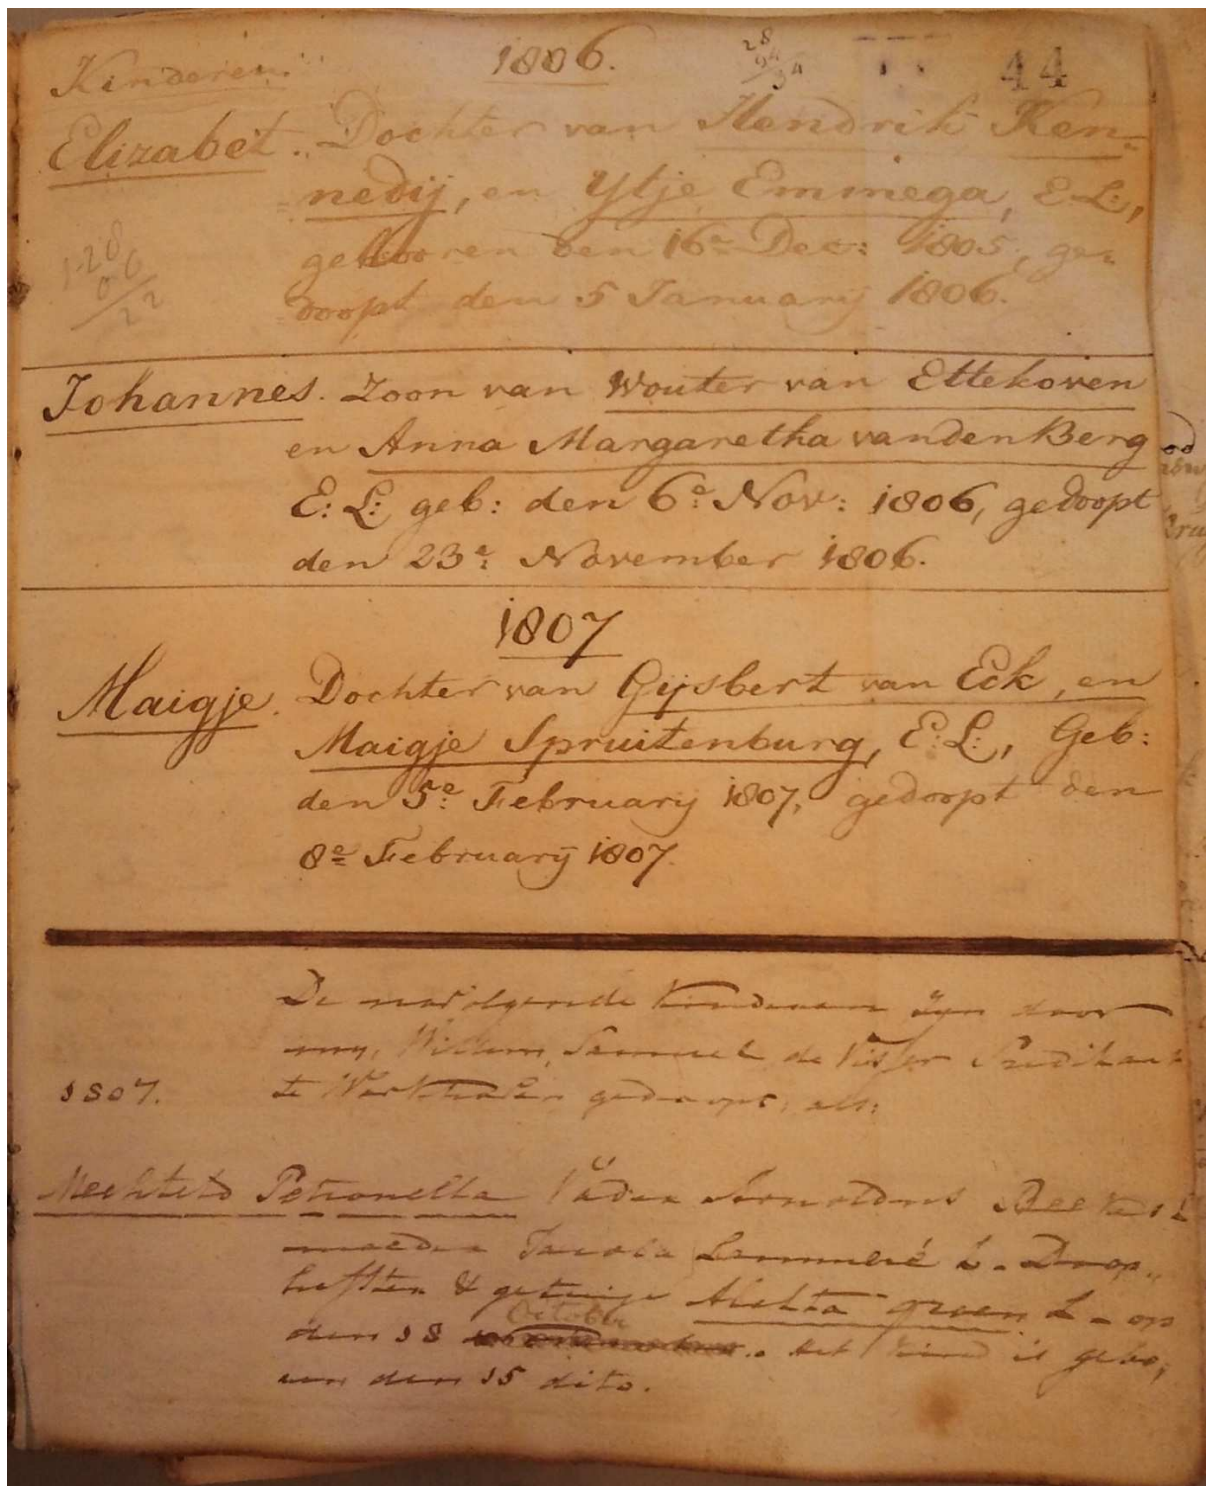 Kinderen. 1806. 44
28
94
34
Elizabet. Dochter van Hendrik Ken=
=nedij, en Ytje Eminega, E: L:,
gebooren den 16e Dec: 1805, ge=
=doopt den 5 Januarij 1806.
1-28
06
22
Johannes. Zoon van Wouter van Ettekoven
en Anna Margaretha van den Berg
E: L: geb: den 6e: Nov: 1806, gedoopt
den 23e: November 1806.
1807
Maigje. Dochter van Gijsbert van Eck, en
Maigje Spruitenburg, E: L:, Geb:
den 5e: February 1807, gedoopt den
8e February 1807.
De navolgende Kinderen zijn door
my, Willem Samuel de Visser Predikant
1807. te Werkhoven gedoopt, als:
Mechteld Petronella Vader Arnoldus
moeder Jacoba L. Doop„
hefster & getuige Alehta groen L - op
October
den 18 . Het kind is gebo„
ren den 15 dito.